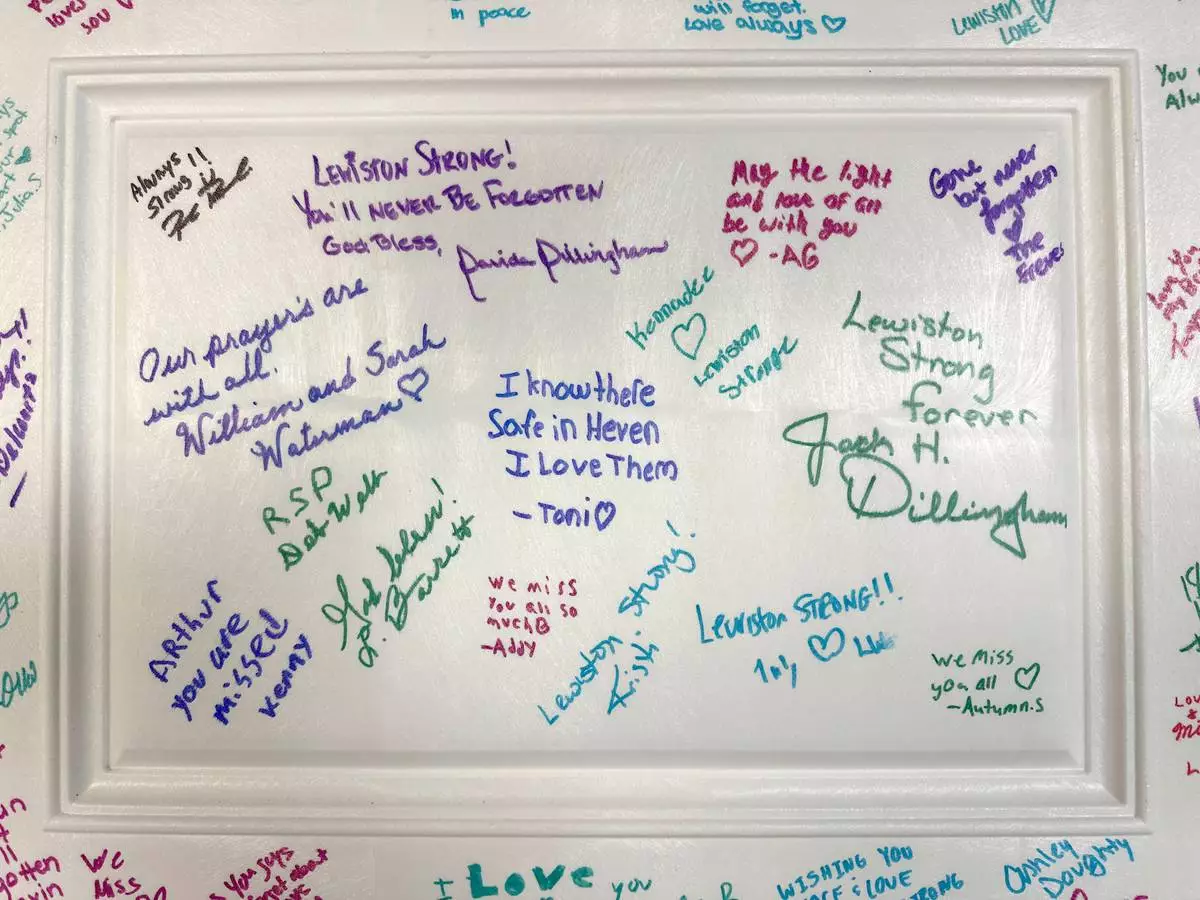 in peace
will forget.
Love always
LEWISTON
LOVE
loves
sou
You
Always
Strong!!
LEWISTON STRONG!
You'll NEVER BE FORGOTTEN
God Bless,
Dillingham
May the light
and love of all
be with you
-AG
Gone
but never
forgotten
The
Our prayer's are
with all.
William and Sarah
Waterman
Kennadee
Lewiston
Stronge
Lewiston
Strong
forever
Jack H.
Dillingham
I know there
Safe in Heven
I Love Them
- Toni
RSP
Deb Welt
God bless!
L. Barrett
ARTHUR
you are
missed
Kenny
We miss
You all so
much
-Addy
Lewiston Strong!
Lewiston STRONG!!.
We miss
you all
-Autumn.S
We
Miss
I Love you
WISHING YOU
& LOVE
Ashley
Doughty